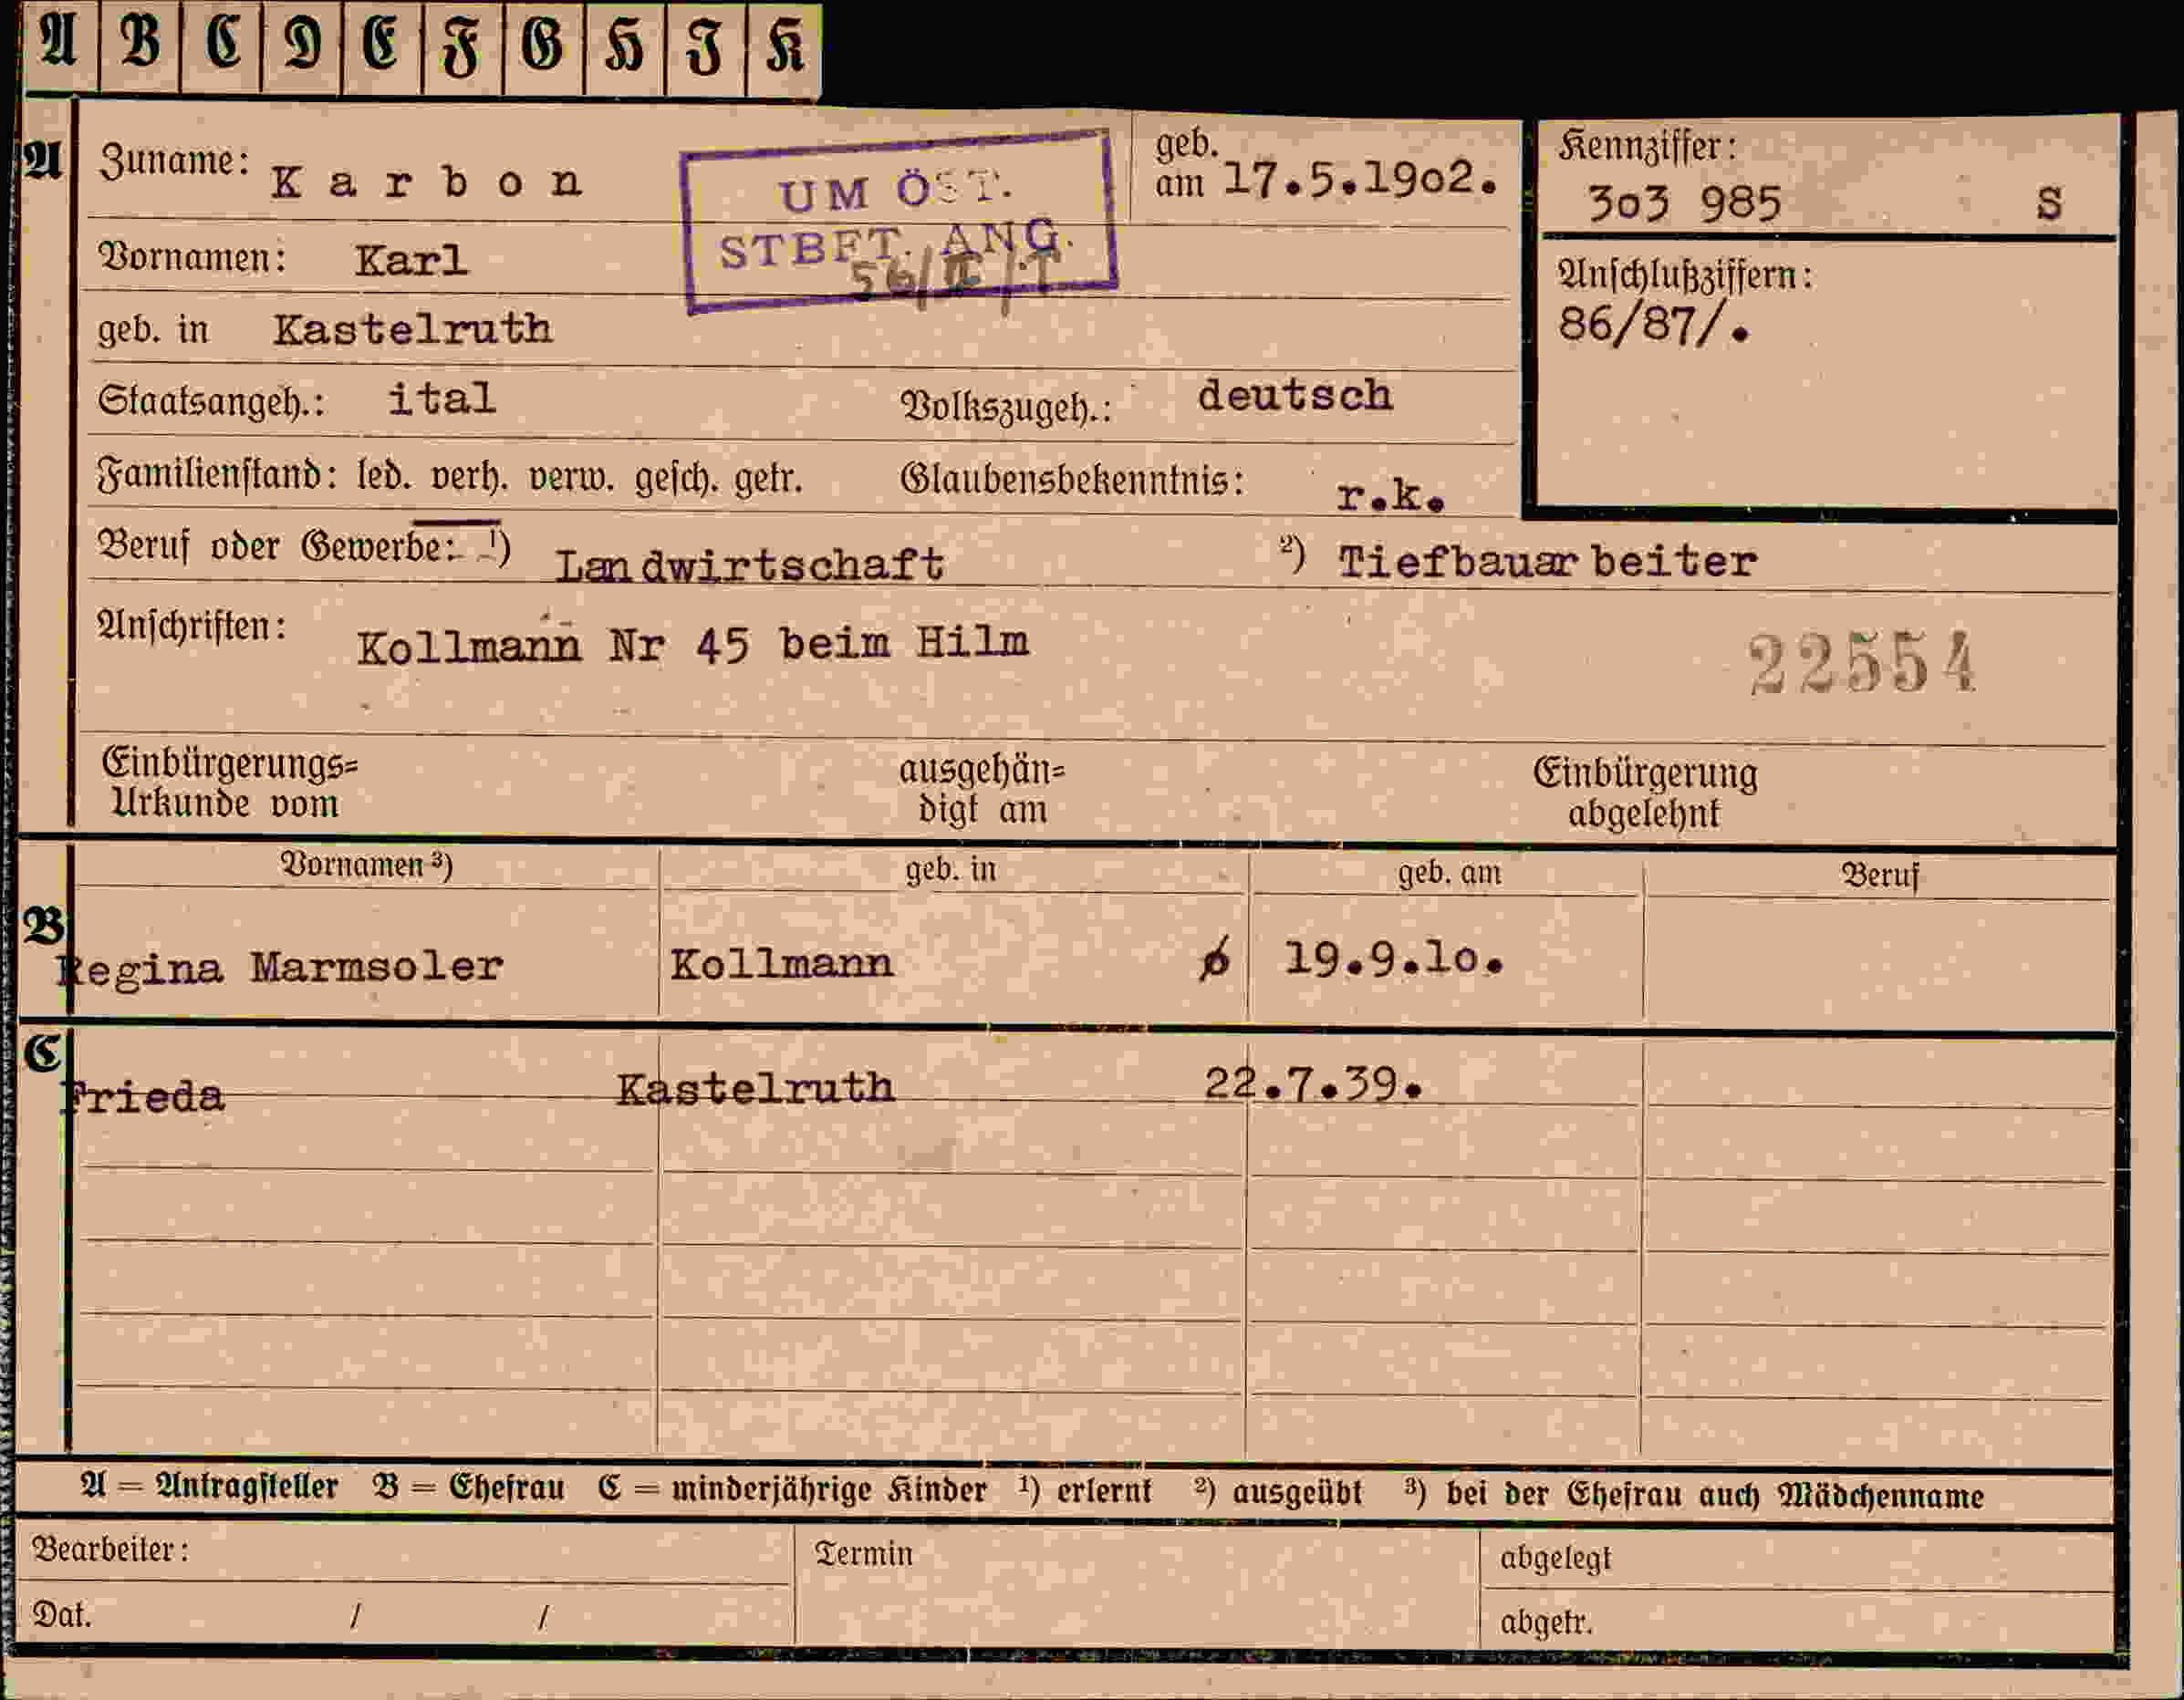 A B C D E F G H I K
A Zuname: Karbon
UM ÖST.
STBFT. ANG.
56/II/T
geb. am 17.5.19o2.
Kennziffer:
3o3 985 S
Vornamen: Karl
Anschlußziffern:
86/87/.
geb. in Kastelruth
Staatsangeh.: ital Volkszugeh.: deutsch
Familienstand: led. verh. verw. gesch. getr. Glaubensbekenntnis: r.k.
Beruf oder Gewerbe: ¹) Landwirtschaft ²) Tiefbauarbeiter
Anschriften: Kollmann Nr 45 beim Hilm
22554
Einbürgerungs= ausgehän= Einbürgerung
Urkunde vom digt am abgelehnt
Vornamen ³) geb. in geb. am Beruf
B
Regina Marmsoler Kollmann 19.9.1o.
C
Frieda Kastelruth 22.7.39.
A = Antragsteller B = Ehefrau C = minderjährige Kinder ¹) erlernt ²) ausgeübt ³) bei der Ehefrau auch Mädchenname
Bearbeiter: Termin abgelegt
Dat. / / abgetr.